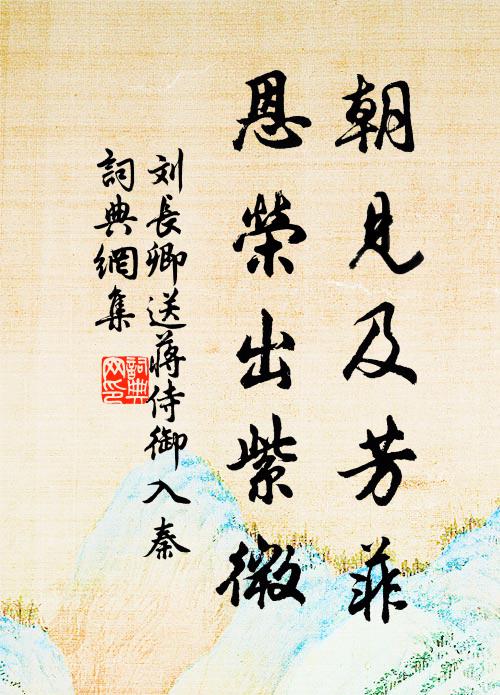 朝見及芳菲
恩榮出紫微
刘長卿送蔣侍御入秦
詞典網集
詞典
网印